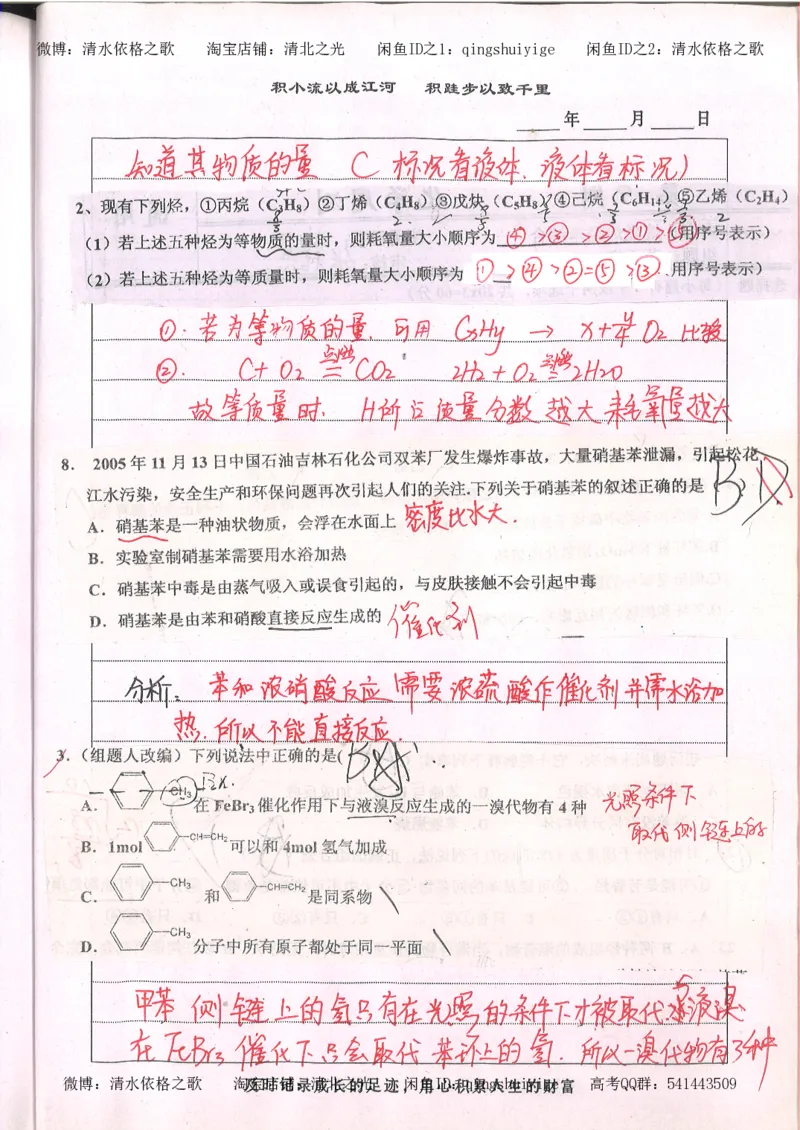 微博：清水依格之歌 淘宝店铺：清北之光 闲鱼ID之1：qingshuiyige 闲鱼ID之2：清水依格之歌
积小流以成江河 积跬步以致千里
____年____月____日
知道其物质的量 （ 标况看液体，液体看标况）
2、现有下列烃，①丙烷（C₃H₈）②丁烯（C₄H₈）③戊炔（C₅H₈）④己烷（C₆H₁₄）⑤乙烯（C₂H₄）
（1）若上述五种烃为等物质的量时，则耗氧量大小顺序为 ④>③>②>①>⑤（用序号表示）
（2）若上述五种烃为等质量时，则耗氧量大小顺序为 ①>④>②=⑤>③ .用序号表示）
①. 若为等物质的量，可用 CxHy → x+y/4 O₂ 比较
②. C+O₂ 点燃═ CO₂ 2H₂+O₂ 点燃═ 2H₂O
故等质量时，H所占质量分数越大 耗氧量越大
8. 2005年11月13日中国石油吉林石化公司双苯厂发生爆炸事故，大量硝基苯泄漏，引起松花
江水污染，安全生产和环保问题再次引起人们的关注.下列关于硝基苯的叙述正确的是（B）
A．硝基苯是一种油状物质，会浮在水面上 密度比水大.
B．实验室制硝基苯需要用水浴加热
C．硝基苯中毒是由蒸气吸入或误食引起的，与皮肤接触不会引起中毒
D．硝基苯是由苯和硝酸直接反应生成的 催化剂
分析：苯和浓硝酸反应 需要浓硫酸作催化剂并需水浴加
热，所以不能直接反应.
3．（组题人改编）下列说法中正确的是( B
A． CH₃ 在 FeBr₃ 催化作用下与液溴反应生成的一溴代物有 4 种 光照条件下
取代侧链上的
B．1mol CH=CH₂ 可以和 4mol 氢气加成
C． CH₃ 和 CH=CH₂ 是同系物
D． CH₃ 分子中所有原子都处于同一平面
甲苯 侧链上的氢只有在光照的条件下才被取代 与液溴
在 FeBr₃ 催化下只会取代苯环上的氢. 所以一溴代物有3种
微博：清水依格之歌 淘宝店铺：清北之光 闲鱼ID：qingshuiyige 高考QQ群：541443509
及时记录成长的足迹，用心积累人生的财富